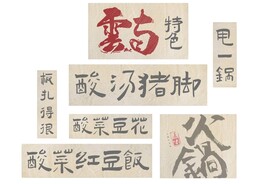 雲南
特色
甩一鍋
酸汤猪脚
板扎得很
酸菜豆花
酸菜紅豆飯
火鍋